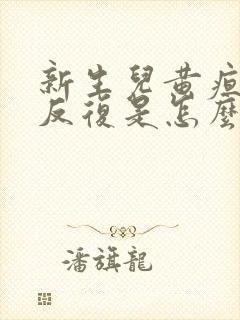 新生兒黄疸
反復是怎麼
潘旗龍